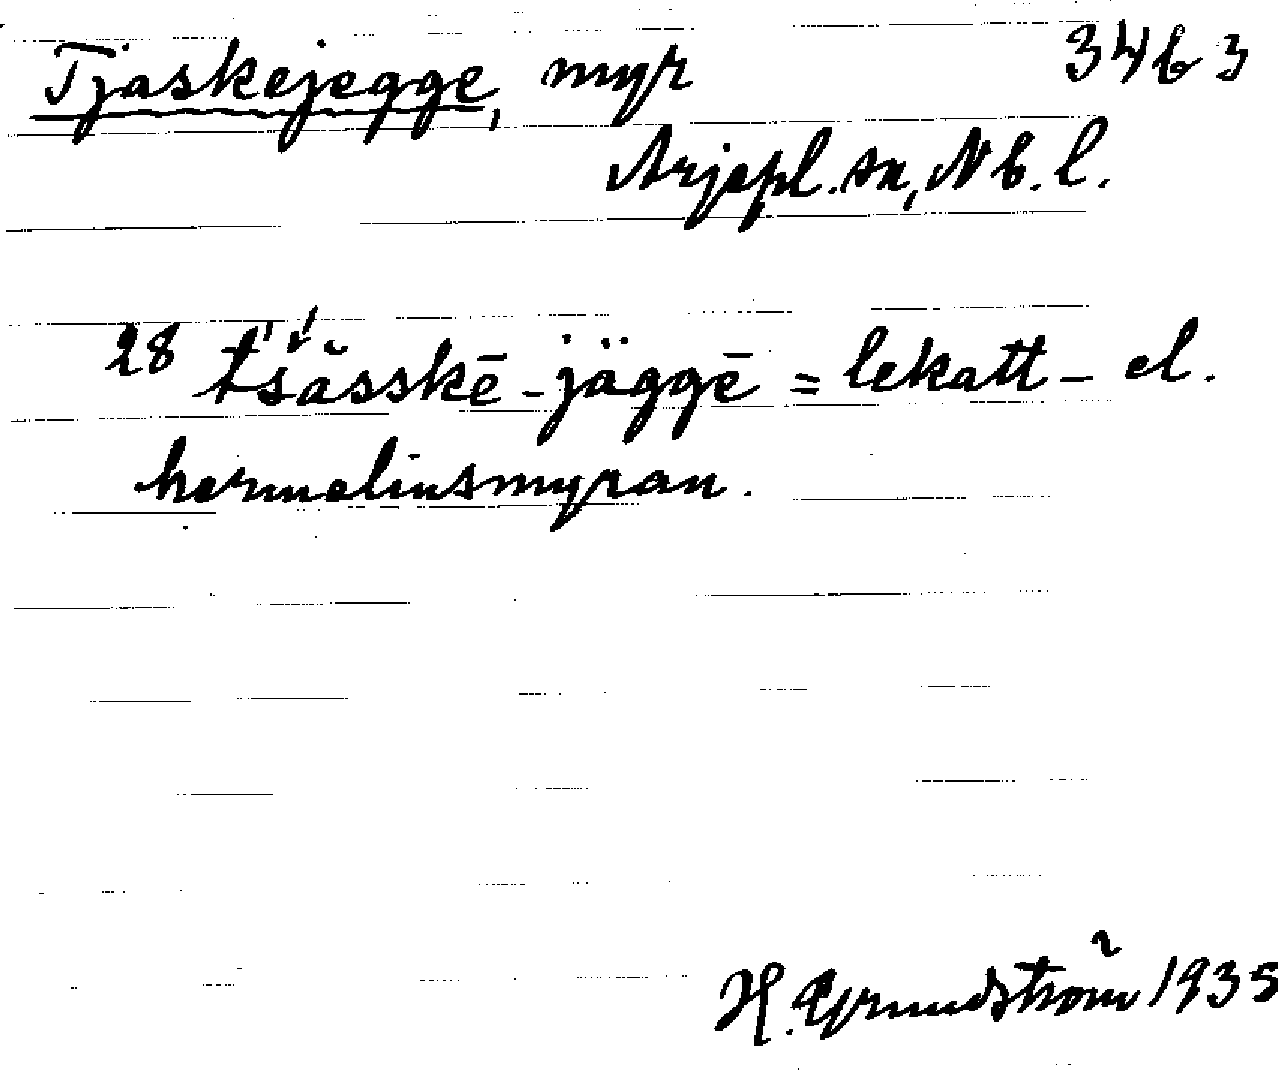 Tjaskejegge, myr 34b3
Arjepl. sn, Nb. l.
28 t'šăsskē-jäggē = lekatt- el.
hermelinsmyran.
H. Grundström 1935